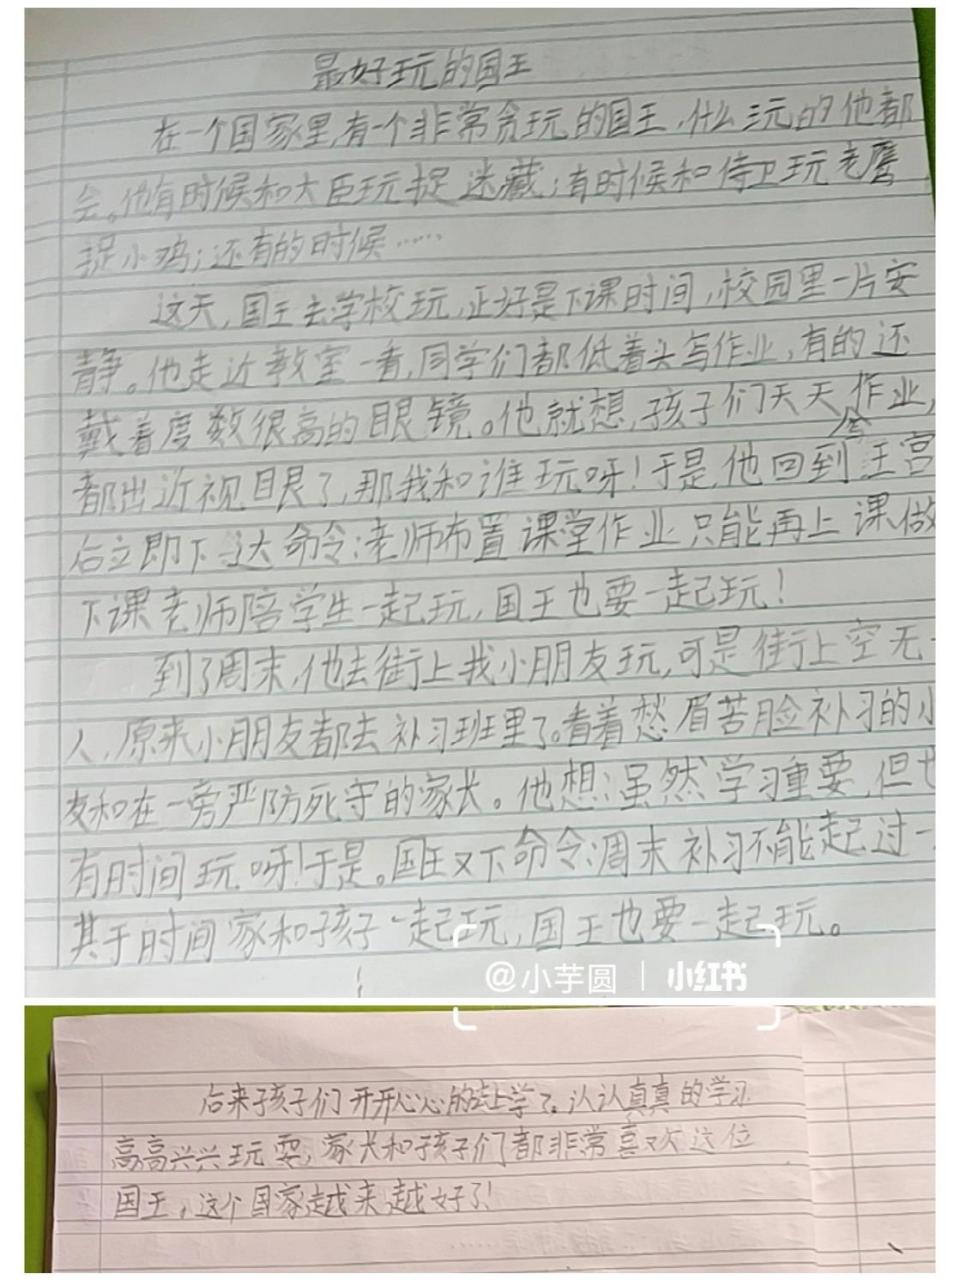 最好玩的国王
在一个国家里,有一个非常贪玩的国王,什么玩的他都
会。他有时候和大臣玩捉迷藏;有时候和侍卫玩老鹰
捉小鸡;还有的时候……
这天,国王去学校玩,正好是下课时间,校园里一片安
静。他走近教室一看,同学们都低着头写作业,有的还
戴着度数很高的眼镜。他就想,孩子们天天写作业,
都出近视眼了,那我和谁玩呀!于是,他回到王宫
后立即下达命令:老师布置课堂作业只能再上课做
下课老师陪学生一起玩,国王也要一起玩!
到了周末,他去街上找小朋友玩,可是街上空无一
人,原来小朋友都去补习班里了。看着愁眉苦脸补习的小
友和在一旁严防死守的家长。他想:虽然学习重要,但也
有时间玩呀!于是。国王又下命令:周末补习不能起过一
其于时间家和孩子一起玩,国王也要一起玩。
@小芋圆 | 小红书
后来孩子们开开心心的去上学了。认认真真的学习
高高兴兴玩耍,家长和孩子们都非常喜欢这位
国王,这个国家越来越好了!